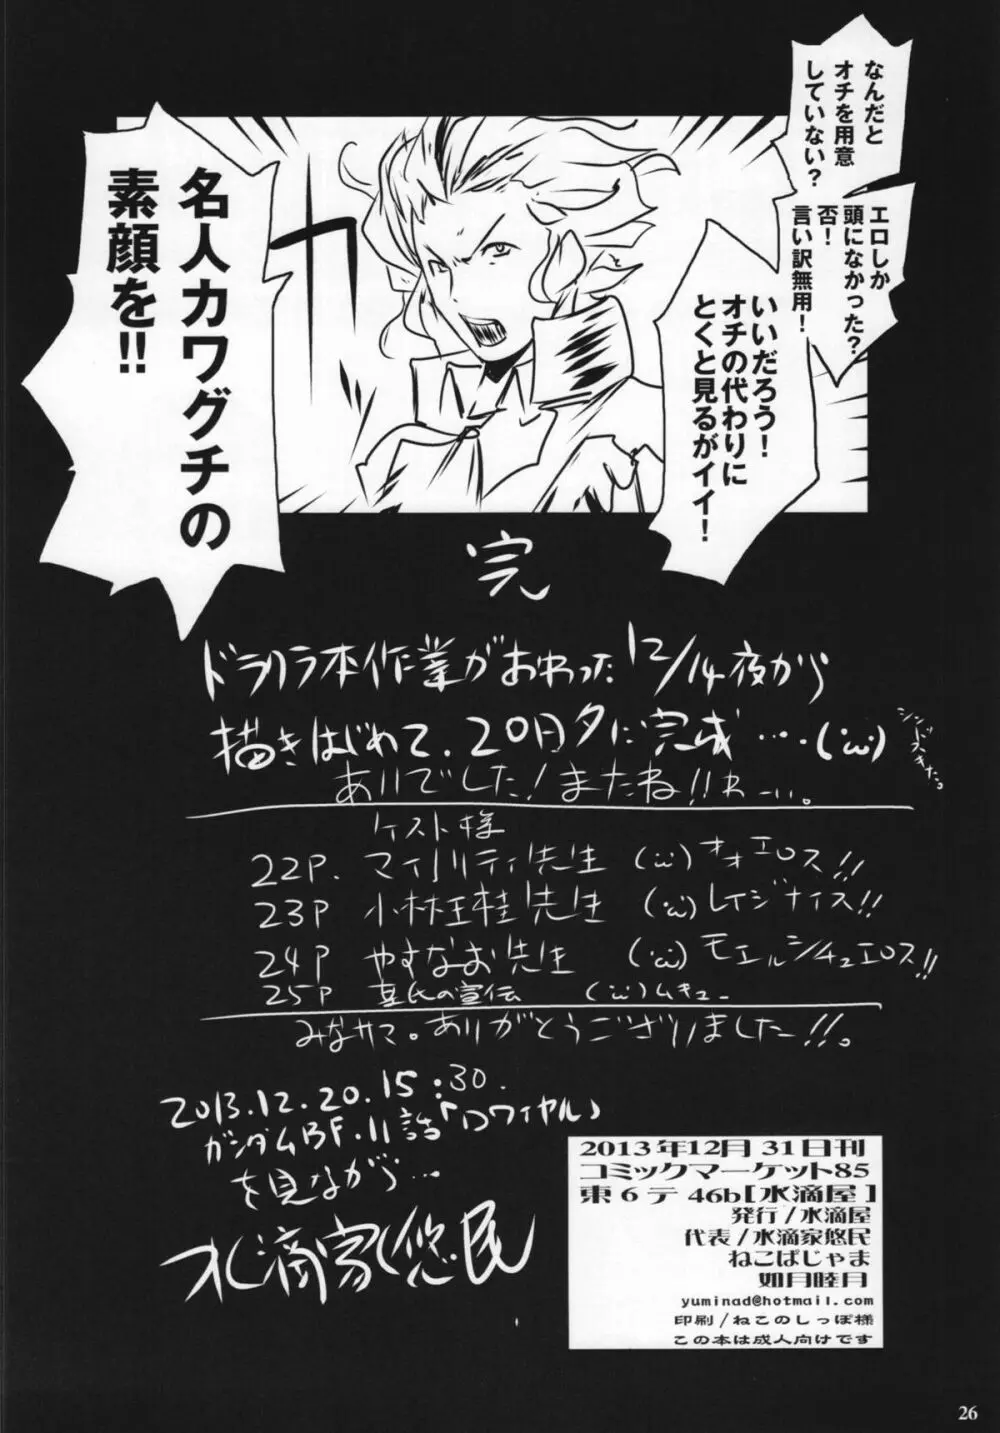 なんだと
オチを用意
していない?
エロしか
頭になかった?
否!
言い訳無用!
いいだろう!
オチの代わりに
とくと見るがイイ!
カ
名人カワグチの
素顔を!!
完
ドラクリラ本作業がおわった12/14夜から
描きはじめて、20日夕に完成‥‥(;ω;)
あリでした!またね!!
ゲスト様
22P. マイノリティ先生 (;ω;)オォエロス!!
23P 小林王桂先生 (;ω;)レイジナイス!!
24P やすなお先生 (;ω;)モエルシチュエロス!!
25P 某氏の宣伝 (;ω;)ムキュー
みなサマ。ありがとうございました!!。
2013.12.20.15:30.
ガンダムBF.11話「ロワイヤル」
を見ながら…
水滴家悠民
2013年12月31日刊
コミックマーケット85
東6テ46b[水滴屋]
発行/水滴屋
代表/水滴家悠民
ねこぱじゃま
如月睦月
yuminad@hotmail.com
印刷/ねこのしっぽ様
この本は成人向けです
26